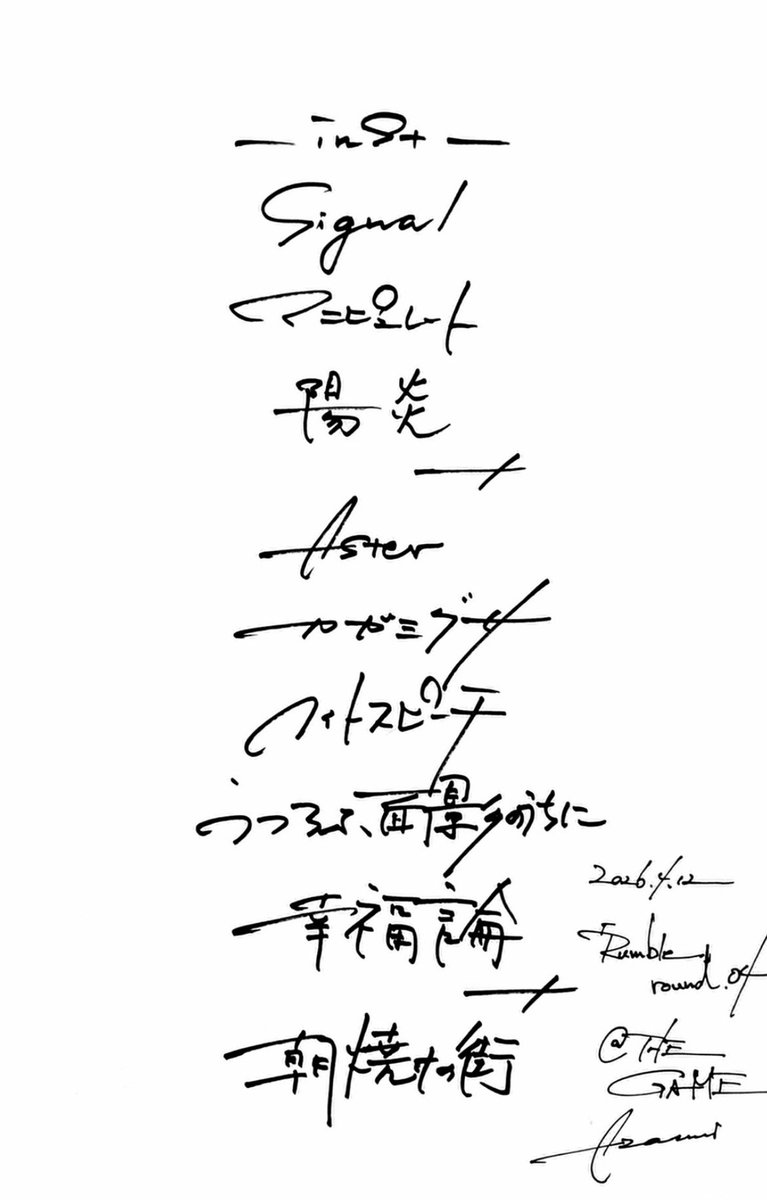 — inst —
Signal
マニピュレート
陽炎
Aster
カガミグサ
フィトスピーチ
うつろふ、面影のうちに
幸福論
朝焼けの街
2026.4.12
Rumble
round.04
@THE
GAME
Azami